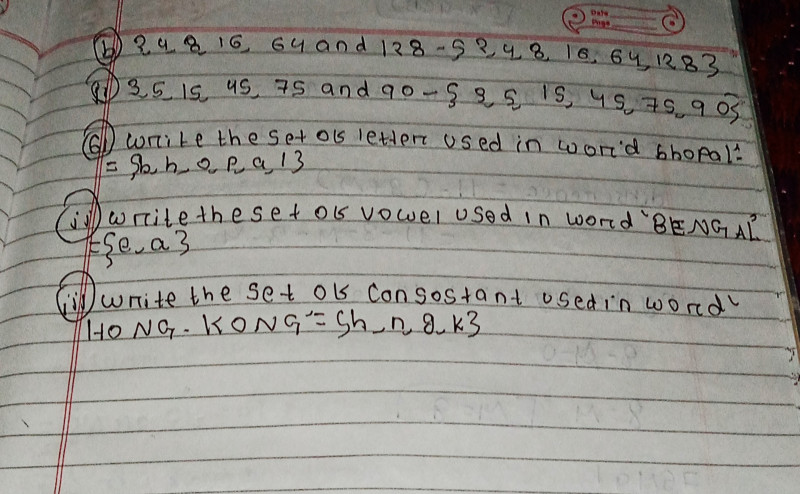 Date
Page
(b) 2, 4, 8, 16, 64 and 128 - {2, 4, 8, 16, 64, 128}
(ii) 3, 5, 15, 45, 75 and 90 - {3, 5, 15, 45, 75, 90}
(c) Write the set of letter used in word bhopal:
= {b, h, o, p, a, l}
(ii) write the set of vowel used in word "BENGAL"
= {e, a}
(iii) write the set of consostant used in word "
HONG-KONG" = {h, n, g, k}